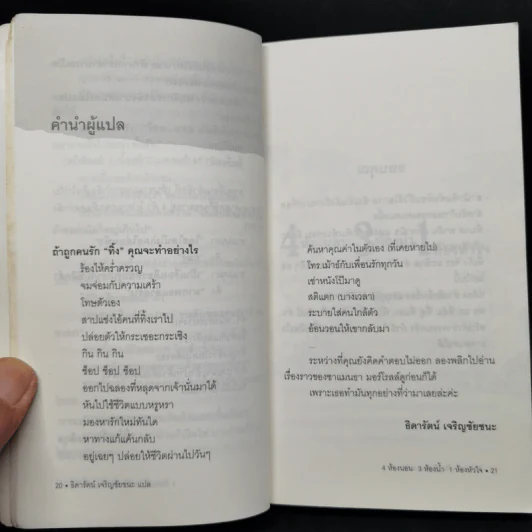 คำนำผู้แปล
ถ้าถูกคนรัก “ทิ้ง” คุณจะทำอย่างไร
ร้องไห้คร่ำครวญ
จมจ่อมกับความเศร้า
โทษตัวเอง
สาปแช่งไอ้คนที่ทิ้งเราไป
ปล่อยตัวให้กระเซอะกระเซิง
กิน กิน กิน
ช็อป ช็อป ช็อป
ออกไปฉลองที่หลุดจากเจ้านั่นมาได้
หันไปใช้ชีวิตแบบหรูหรา
มองหารักใหม่ทันใด
หาทางแก้แค้นกลับ
อยู่เฉยๆ ปล่อยให้ชีวิตผ่านไปวันๆ
20 • ธิดารัตน์ เจริญชัยชนะ แปล
ค้นหาคุณค่าในตัวเอง (ที่เคยหายไป)
โทร.เม้าธ์กับเพื่อนรักทุกวัน
เช่าหนังโป๊มาดู
สติแตก (บางเวลา)
ระบายใส่คนใกล้ตัว
อ้อนวอนให้เขากลับมา
...
ระหว่างที่คุณยังคิดคำตอบไม่ออก ลองพลิกไปอ่าน
เรื่องราวของซาแมนธา มอร์โรลส์ดูก่อนก็ได้
เพราะเธอทำมันทุกอย่างที่ว่ามาเลยล่ะค่ะ
ธิดารัตน์ เจริญชัยชนะ
4 ห้องนอน · 3 ห้องน้ำ · 1 ห้องหัวใจ • 21